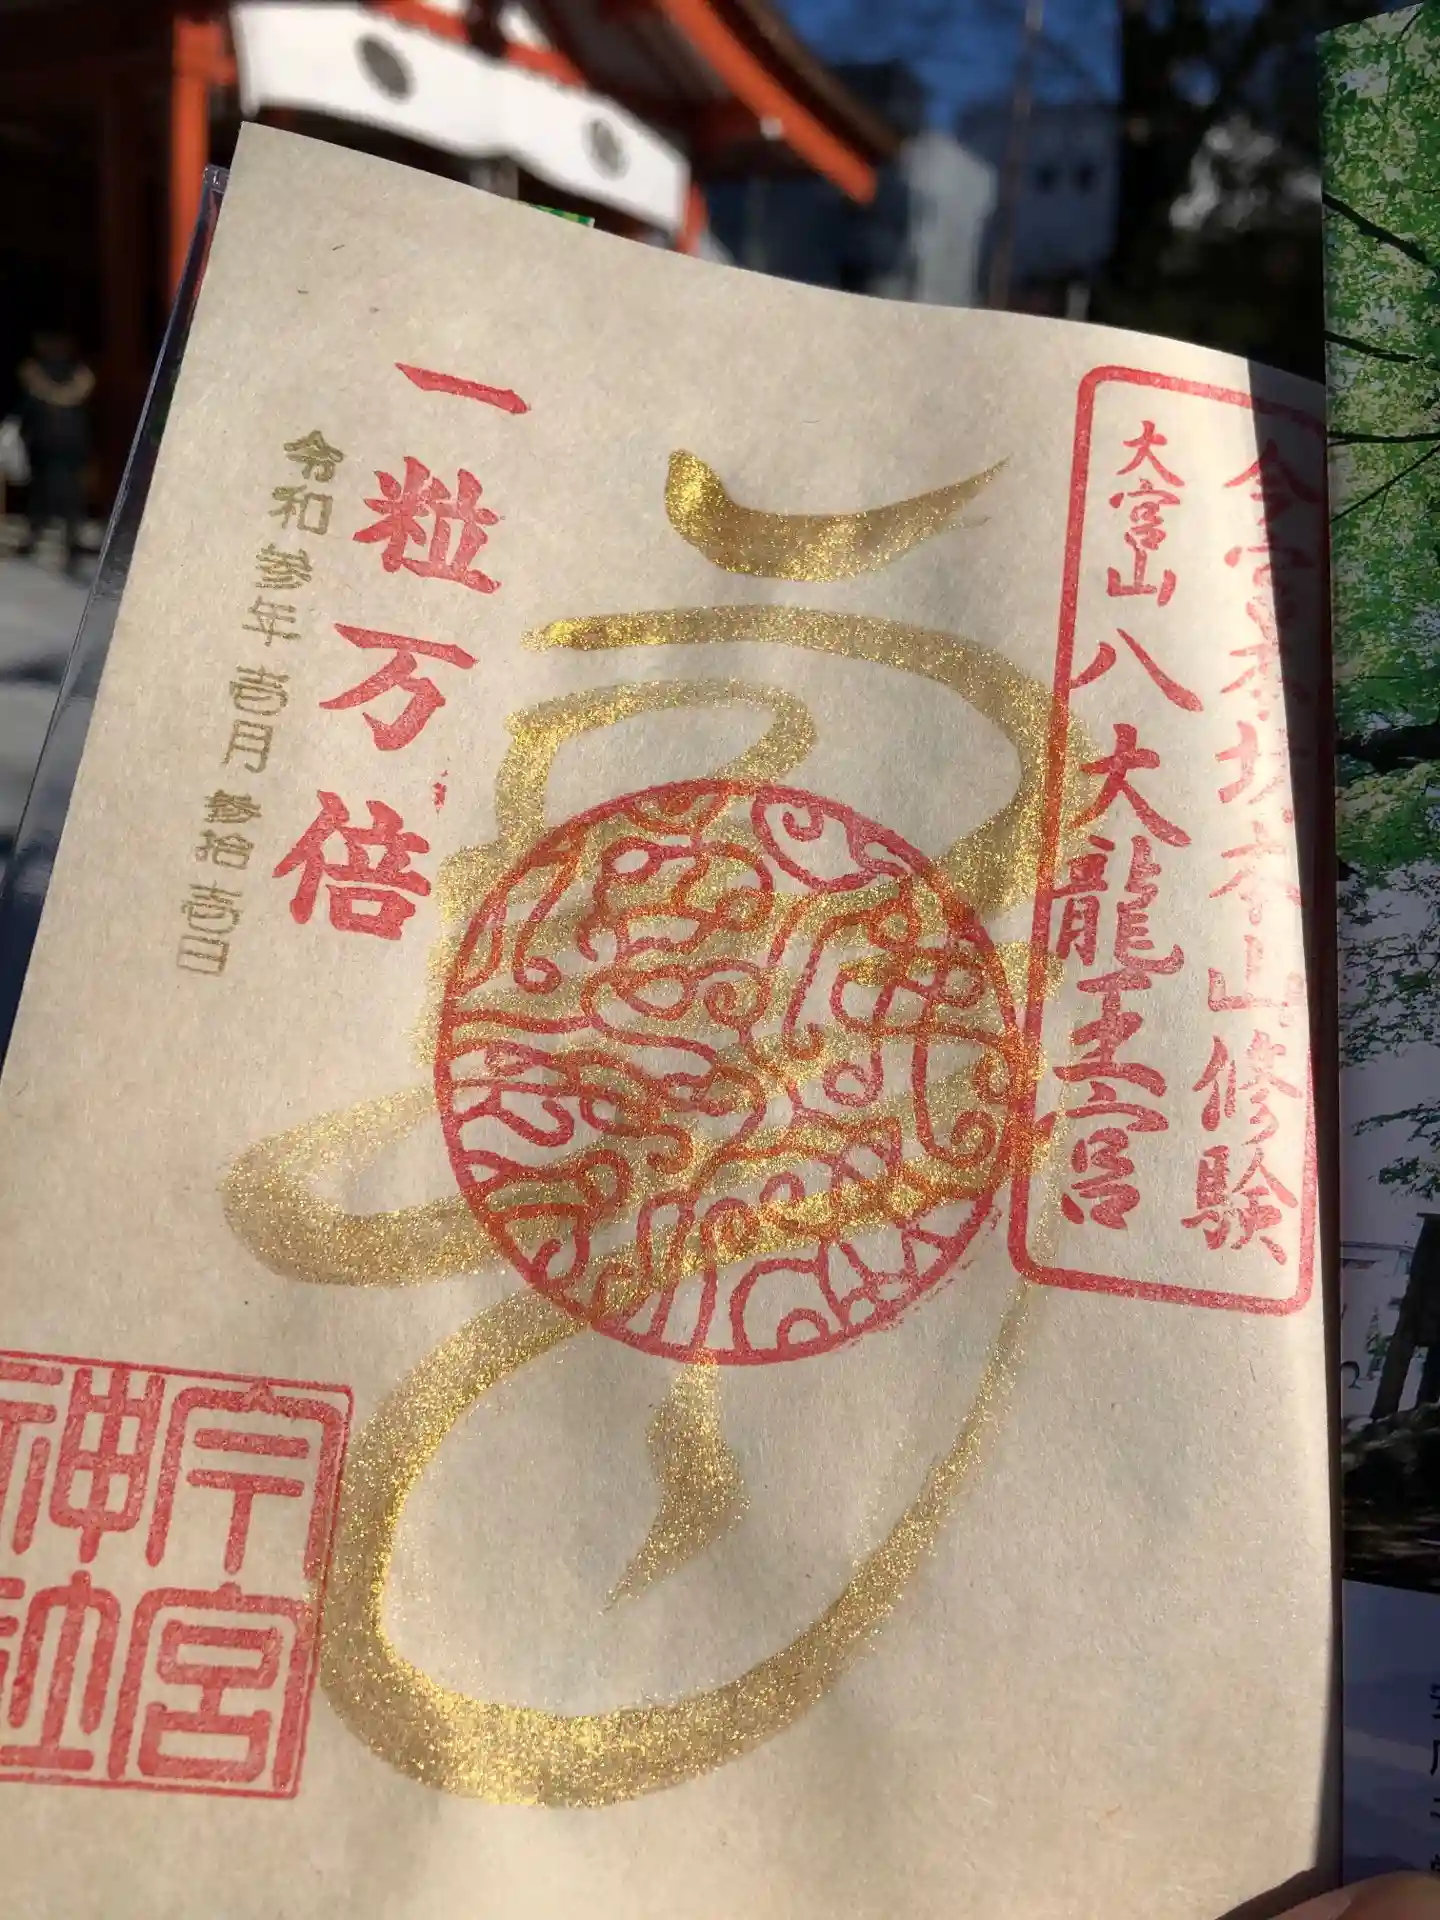 今宮坊本山修験
大宮山八大龍王宮
一粒万倍
令和参年壱月参拾壱日
今宮
神社